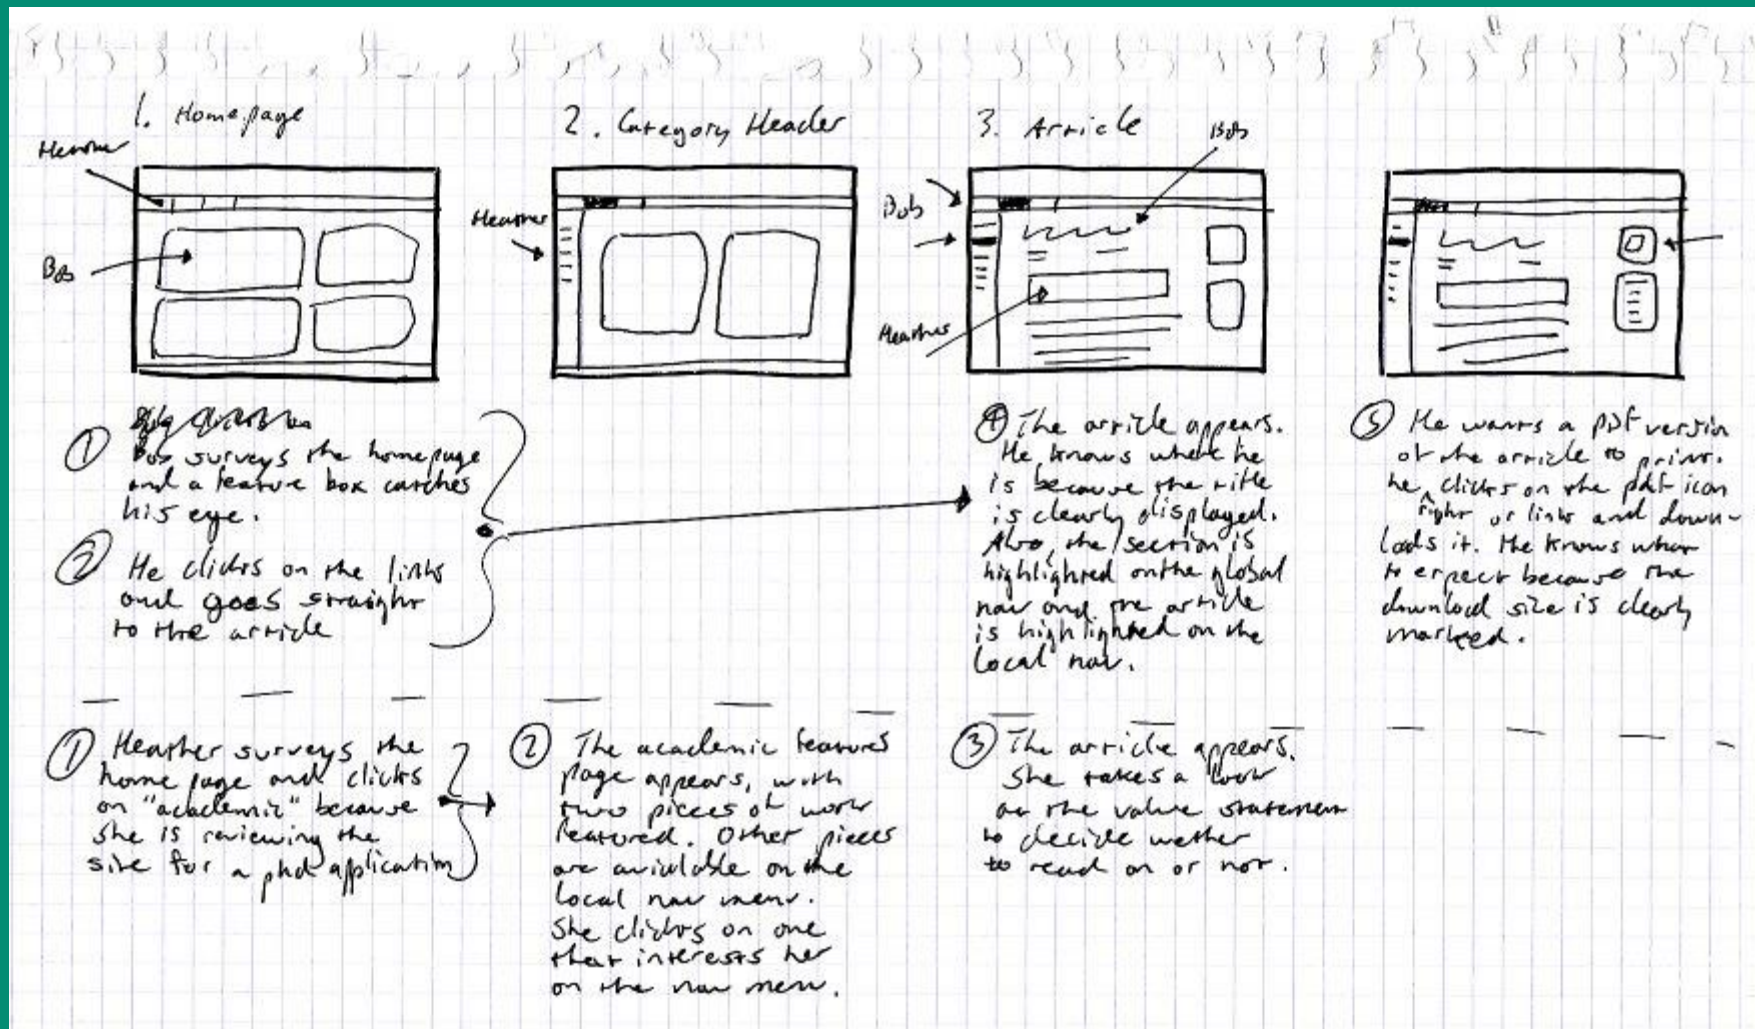 1. Homepage
2. Category Header
3. Article
Bob
Heather
Bob
Heather
Bob
Heather
① Bob surveys the homepage
and a feature box catches
his eye.
② He clicks on the links
and goes straight
to the article
④ The article appears.
He knows where he
is because the title
is clearly displayed.
Also, the section is
highlighted on the global
nav and the article
is highlighted on the
local nav.
⑤ He wants a pdf version
of the article to print.
he clicks on the pdf icon
right or link and down-
loads it. He knows what
to expect because the
download size is clearly
marked.
① Heather surveys the
home page and clicks
on "academic" because
she is reviewing the
site for a phd application
② The academic features
page appears, with
two pieces of work
featured. Other pieces
are avialable on the
local nav menu.
She clicks on one
that interests her
on the nav menu.
③ The article appears.
She takes a look
at the value statement
to decide wether
to read on or not.